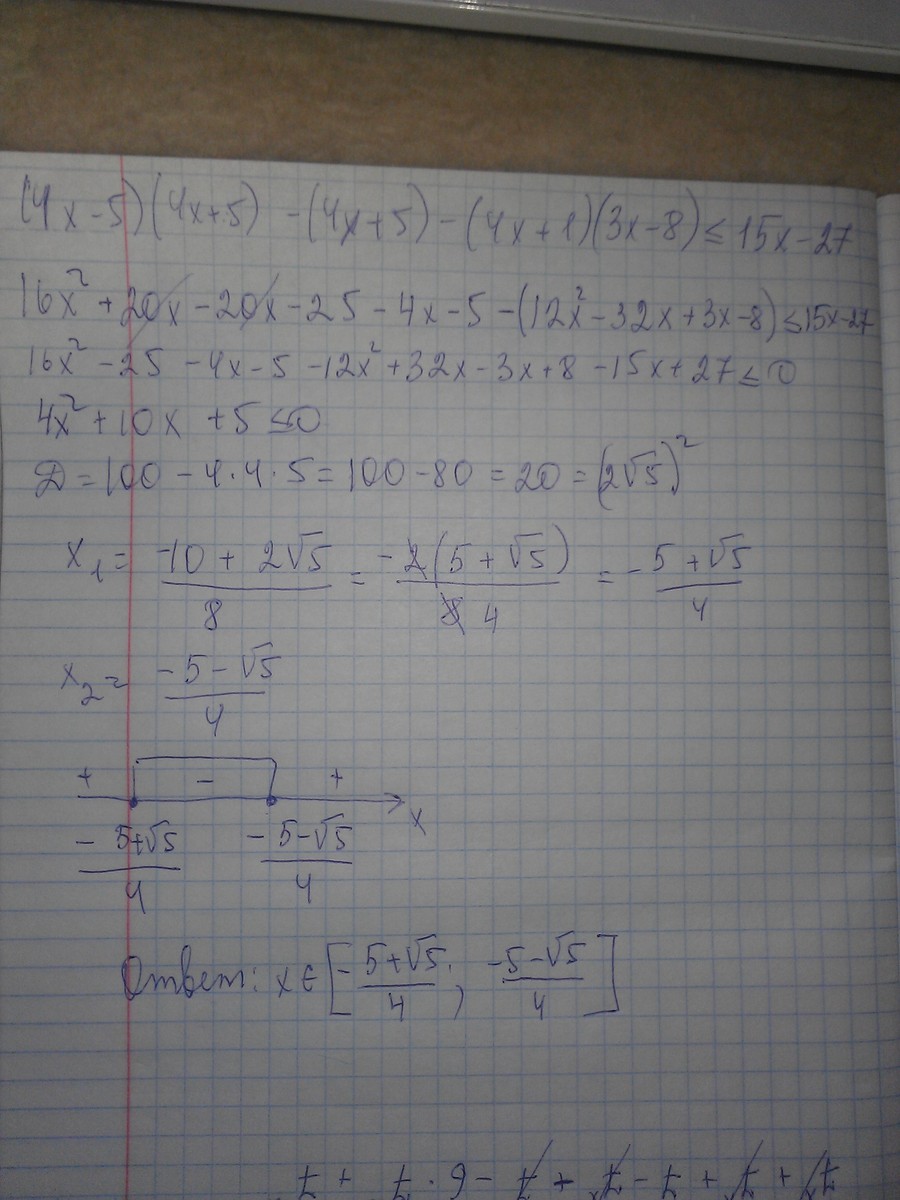 (4x-5)(4x+5) - (4x+5) - (4x+1)(3x-8) ≤ 15x-27
16x² + 20x - 20x - 25 - 4x - 5 - (12x² - 32x + 3x - 8) ≤ 15x-27
16x² - 25 - 4x - 5 - 12x² + 32x - 3x + 8 - 15x + 27 ≤ 0
4x² + 10x + 5 ≤ 0
D = 100 - 4·4·5 = 100 - 80 = 20 = (2√5)²
x₁ = (-10 + 2√5)/8 = -2(5 + √5)/8 4 = -(5 + √5)/4
x₂ = (-5 - √5)/4
+ - +
x
-(5+√5)/4 -(5-√5)/4
Ответ: x ∈ [-(5+√5)/4; (-5-√5)/4]